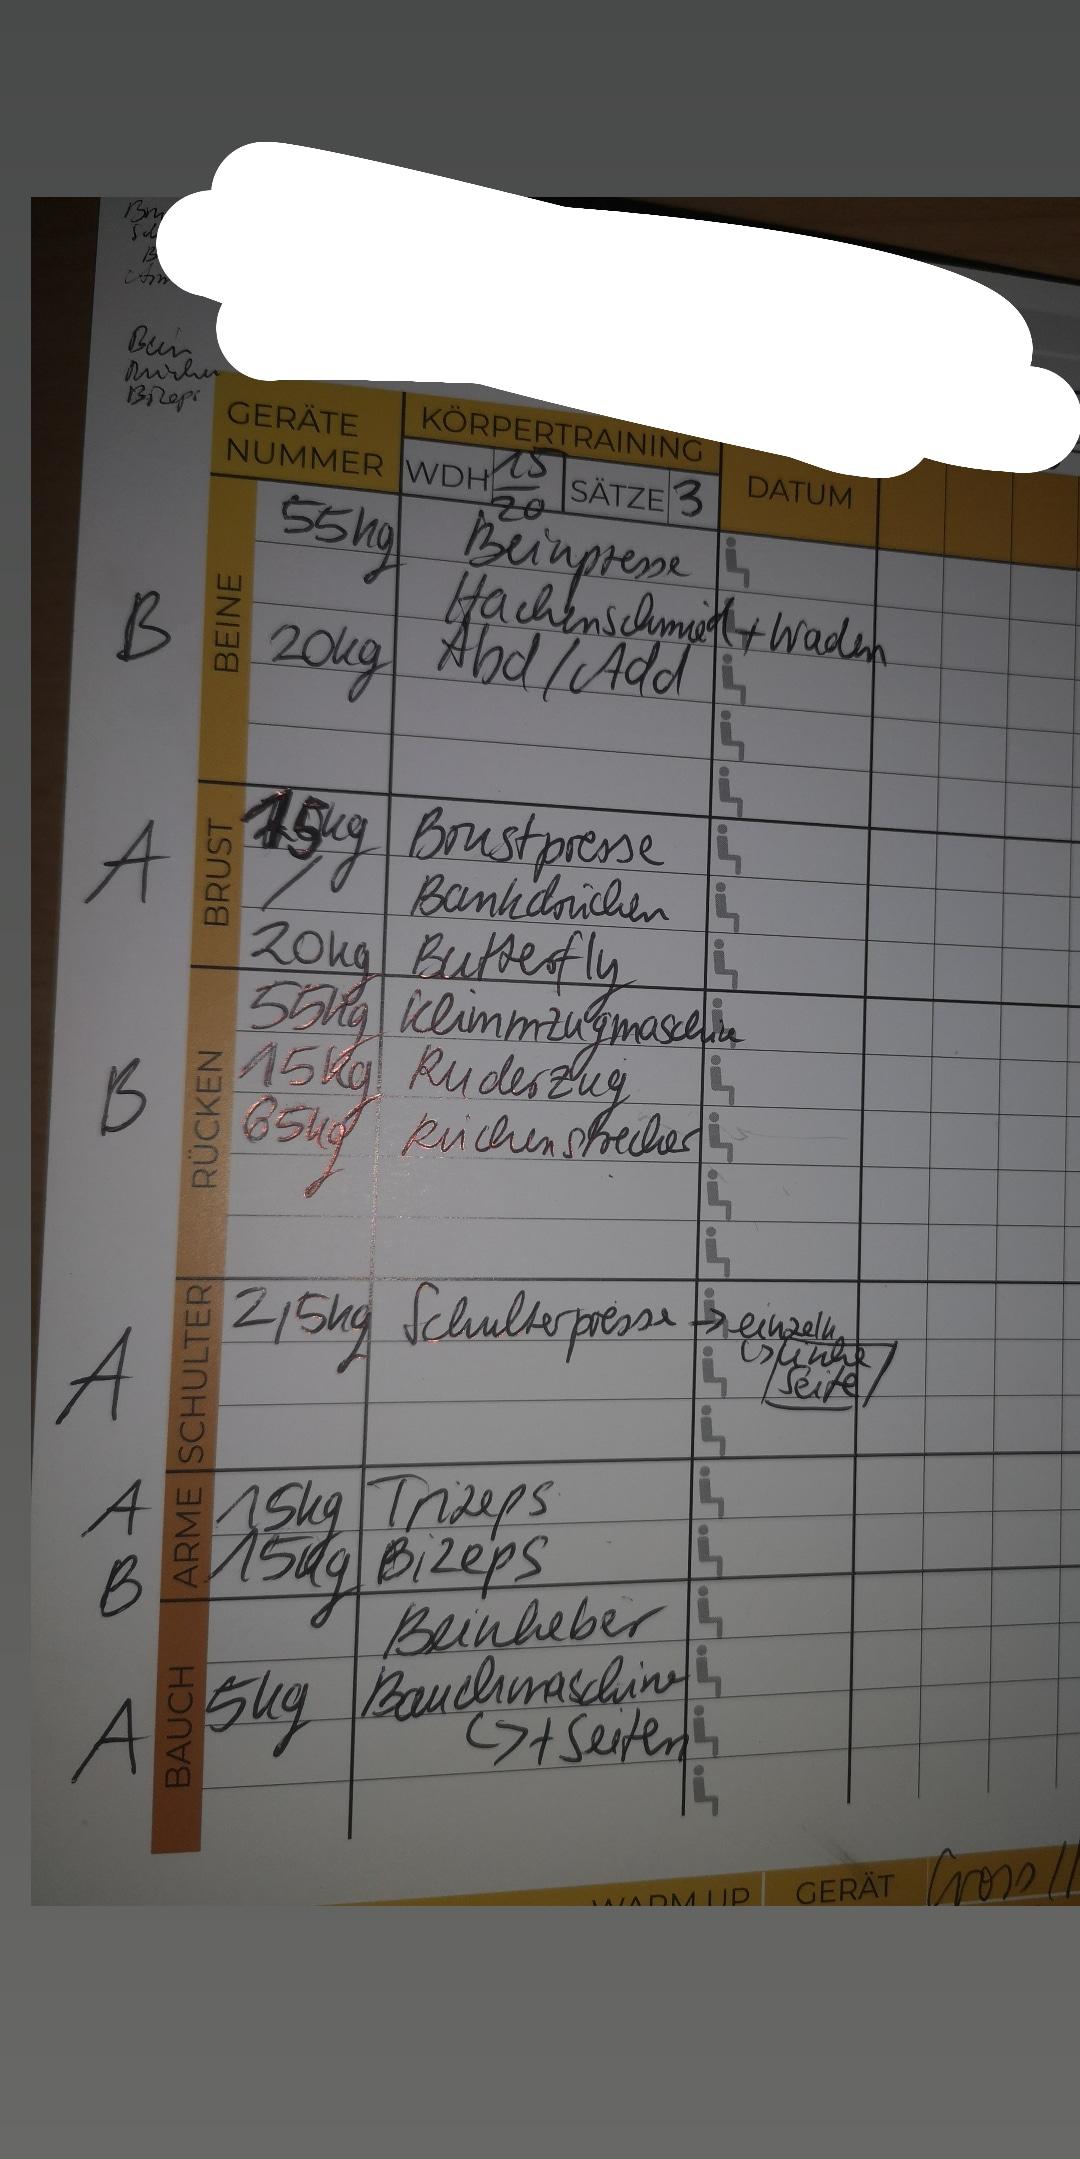 Bein
Rücken
Bizeps
GERÄTE
NUMMER
KÖRPERTRAINING
WDH 15
20
SÄTZE 3
DATUM
BEINE
B
55kg Beinpresse
Hackenschmidt + Waden
20kg Abd/Add
BRUST
A
15kg Brustpresse
/ Bankdrücken
20kg Butterfly
RÜCKEN
B
55kg Klimmzugmaschin
15kg Ruderzug
65kg Rückenstrecker
SCHULTER
A
2,5kg Schulterpresse → einzeln
↳ linke
Seite
ARME
A 15kg Trizeps
B 15kg Bizeps
BAUCH
A
Beinheber
5kg Bauchmaschine
↳ + Seiten
WARM UP GERÄT Cross